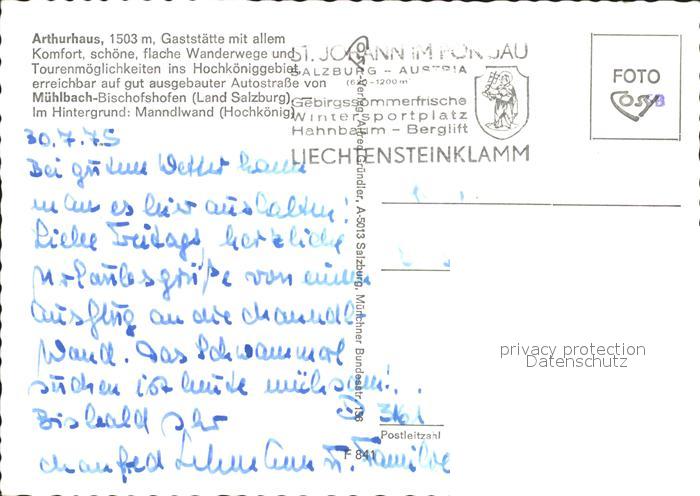 Arthurhaus, 1503 m, Gaststätte mit allem
Komfort, schöne, flache Wanderwege und
Tourenmöglichkeiten ins Hochköniggebiet,
erreichbar auf gut ausgebauter Autostraße von
Mühlbach-Bischofshofen (Land Salzburg).
Im Hintergrund: Manndlwand (Hochkönig)
ST. JOHANN IM PONGAU
SALZBURG - AUSTRIA
Gebirgssommerfrische
Wintersportplatz
Hahnbaum - Berglift
LIECHTENSTEINKLAMM
FOTO
Cosy
30.7.75
Bei gutem Wetter kann
man es hier aushalten!
Liebe Freitags, herzliche
Urlaubsgrüße von einem
Ausflug an die Manndl-
Wand. Das Schwammerl
suchen ist heute mühsam!
Bis bald Ihr
Manfred Lehmann u. Familie
Cosy-Verlag Alfred Gründler, A-5013 Salzburg, Münchner Bundesstr. 156
privacy protection
Datenschutz
D 3161
Postleitzahl
F 841